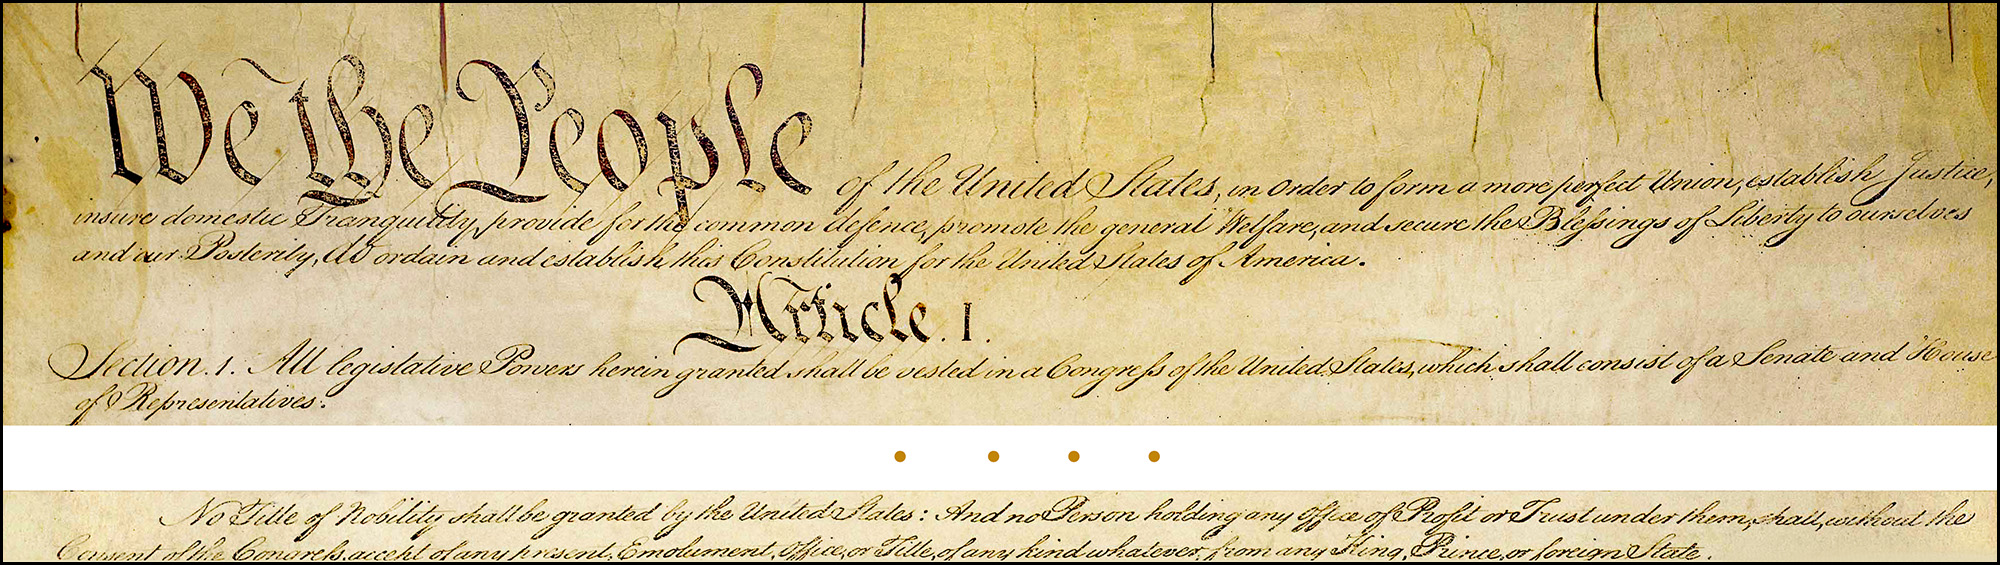 We the People of the United States, in Order to form a more perfect Union, establish Justice,
insure domestic Tranquility, provide for the common defence, promote the general Welfare, and secure the Blessings of Liberty to ourselves
and our Posterity, do ordain and establish this Constitution for the United States of America.
Article. I.
Section. 1. All legislative Powers herein granted shall be vested in a Congress of the United States, which shall consist of a Senate and House
of Representatives.
No Title of Nobility shall be granted by the United States: And no Person holding any Office of Profit or Trust under them, shall, without the
Consent of the Congress, accept of any present, Emolument, Office, or Title, of any kind whatever, from any King, Prince, or foreign State.